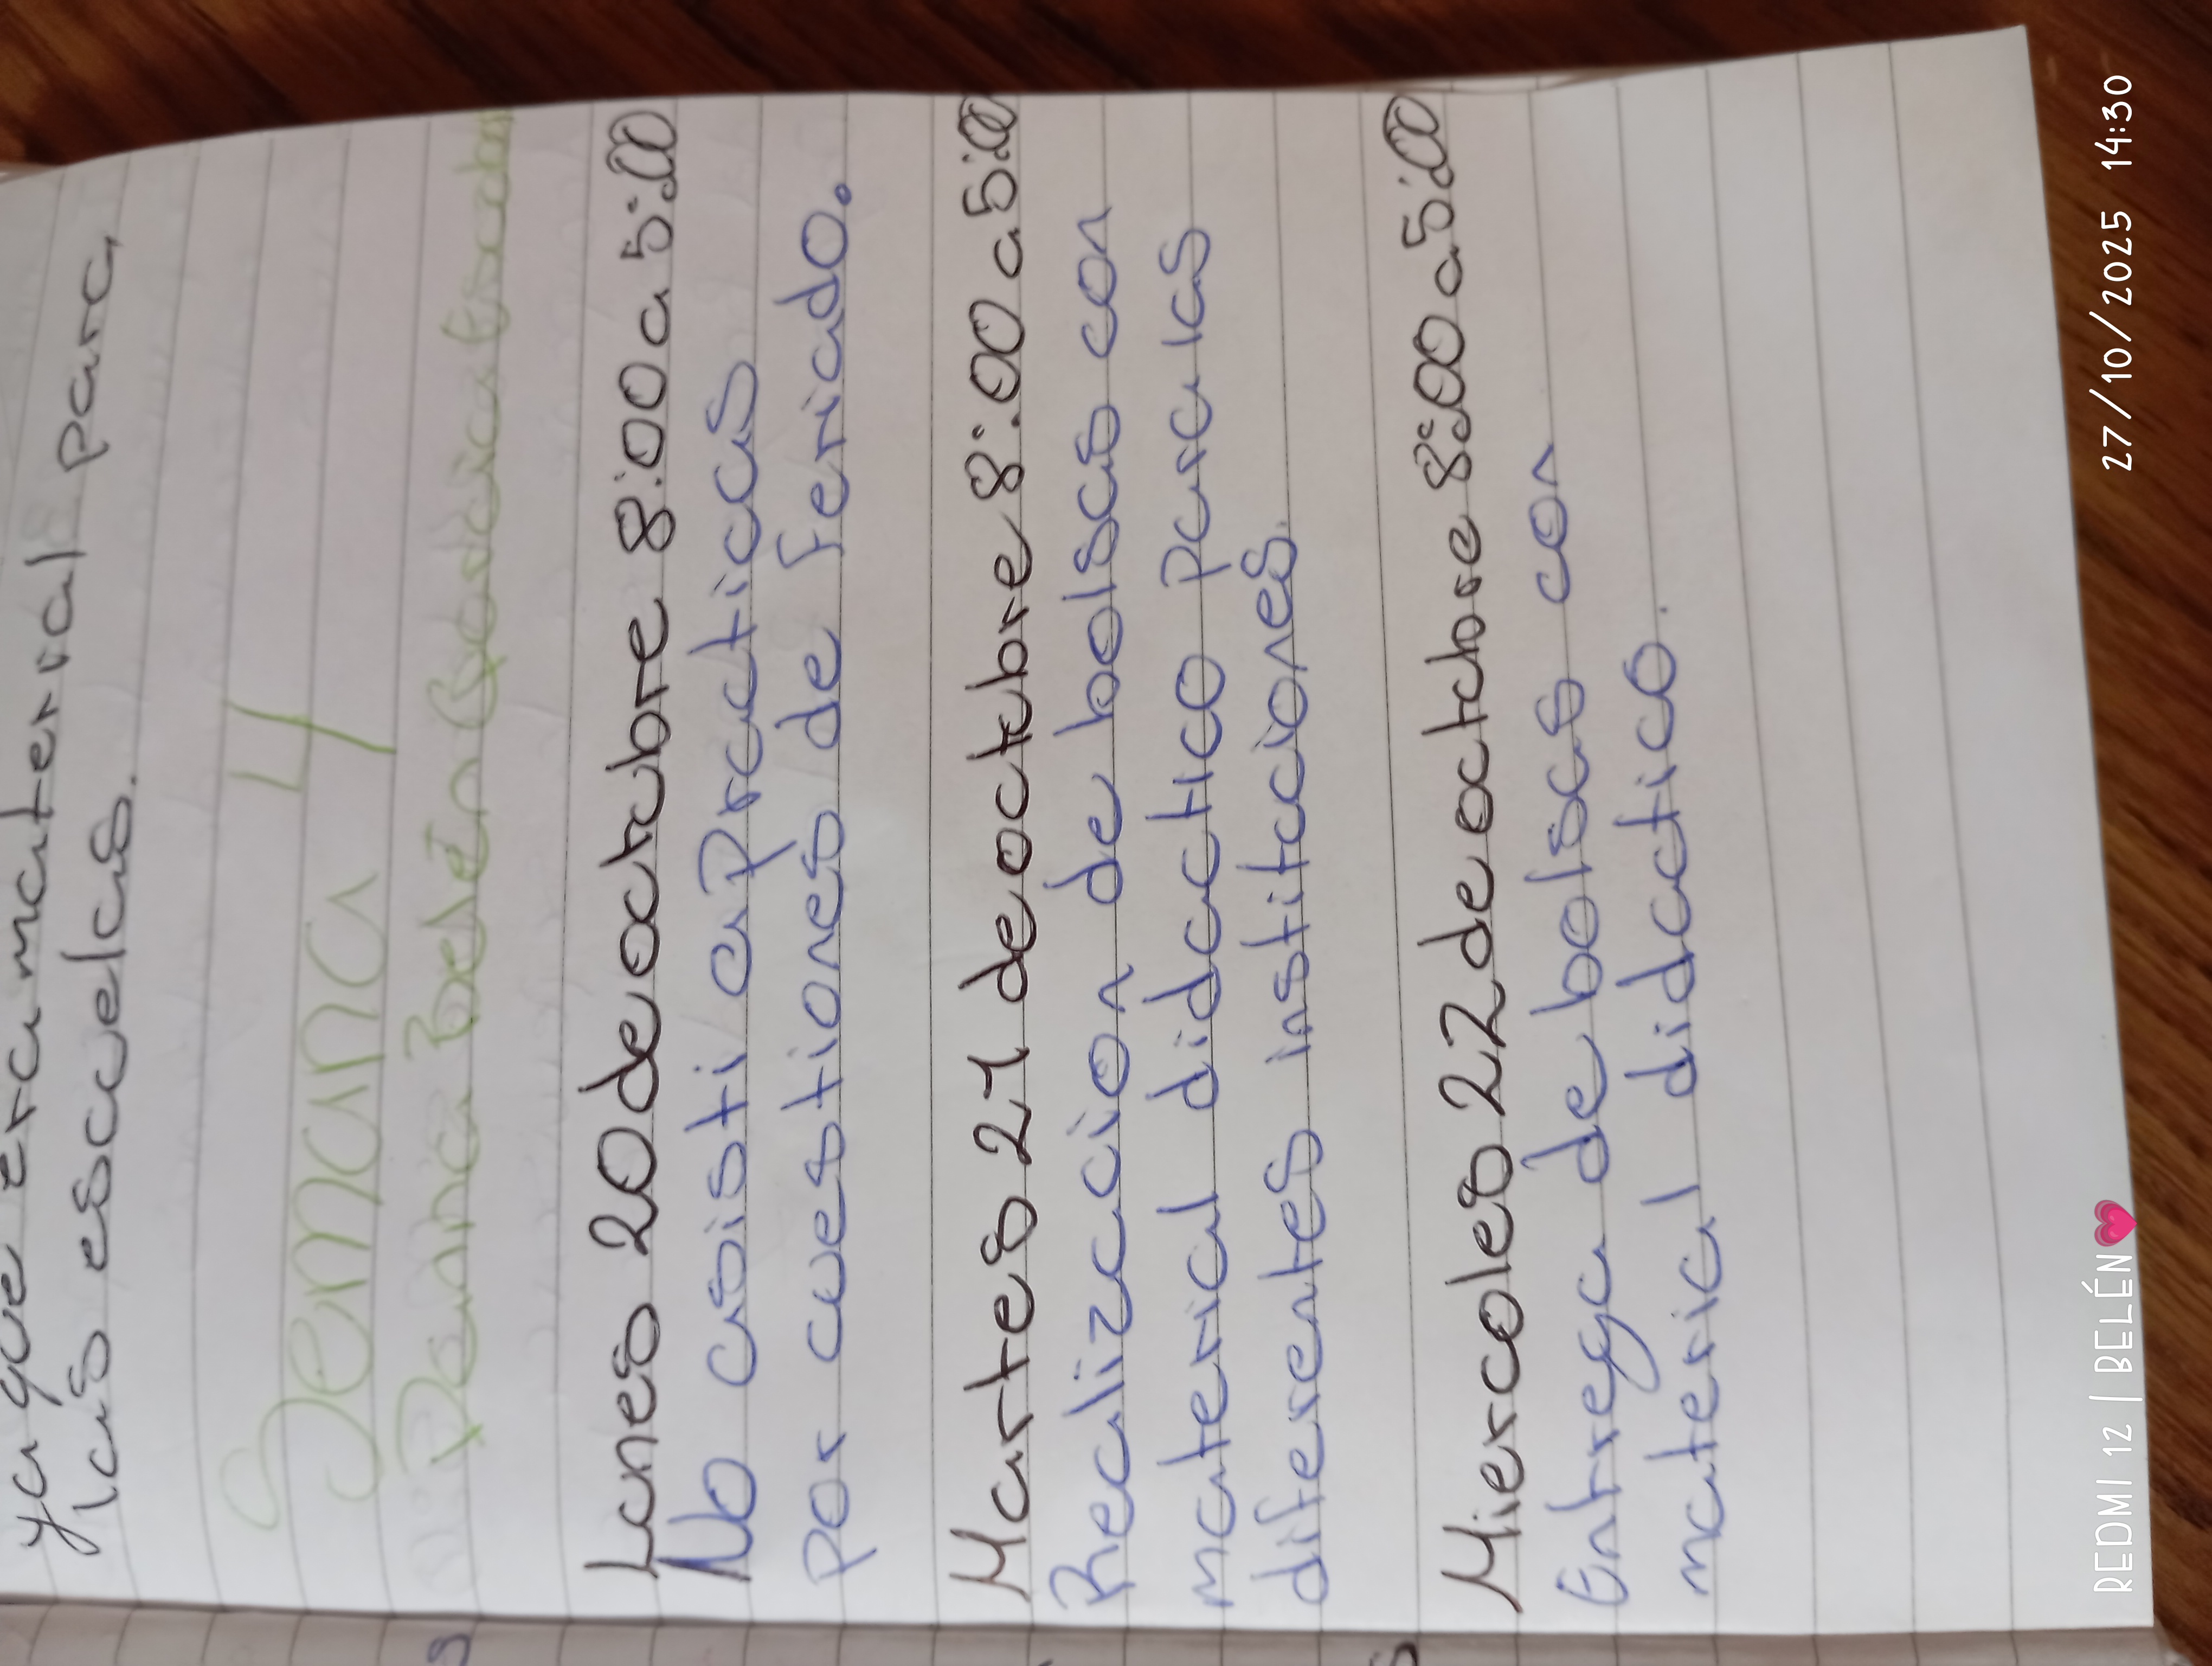 ya que era material para
las escuelas.
Semana 4
Daana Belén
Lunes 20 de octubre 8:00 a 5:00
No asisti a Practicas
por cuestiones de feriado.
Martes 21 de octubre 8:00 a 5:00
Realización de bolsas con
material didactico para las
diferentes instituciones.
Miercoles 22 de octubre 8:00 a 5:00
Entrega de bolsas con
material didactico.
REDMI 12 | BELÉN💗
27/10/2025 14:30